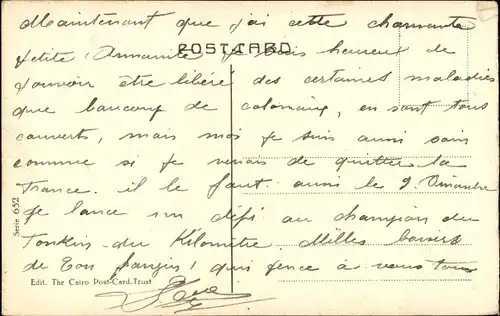 Maintenant que j'ai cette charmante
petite Annamite je suis heureux de
POSTCARD
pouvoir être libéré des certaines maladies
que baucoup de colomiaux, en sont tous
couverts, mais moi je suis aussi sain
comme si je venais de quitter la
France. il le faut aussi le 9 Dimanche
Je lance un défi au champion du
Tonkin du Kilomètre. Milles baisers
de Ton frangin! qui pence à vous tous
Serie 652
Edit. The Cairo Post-Card. Trust